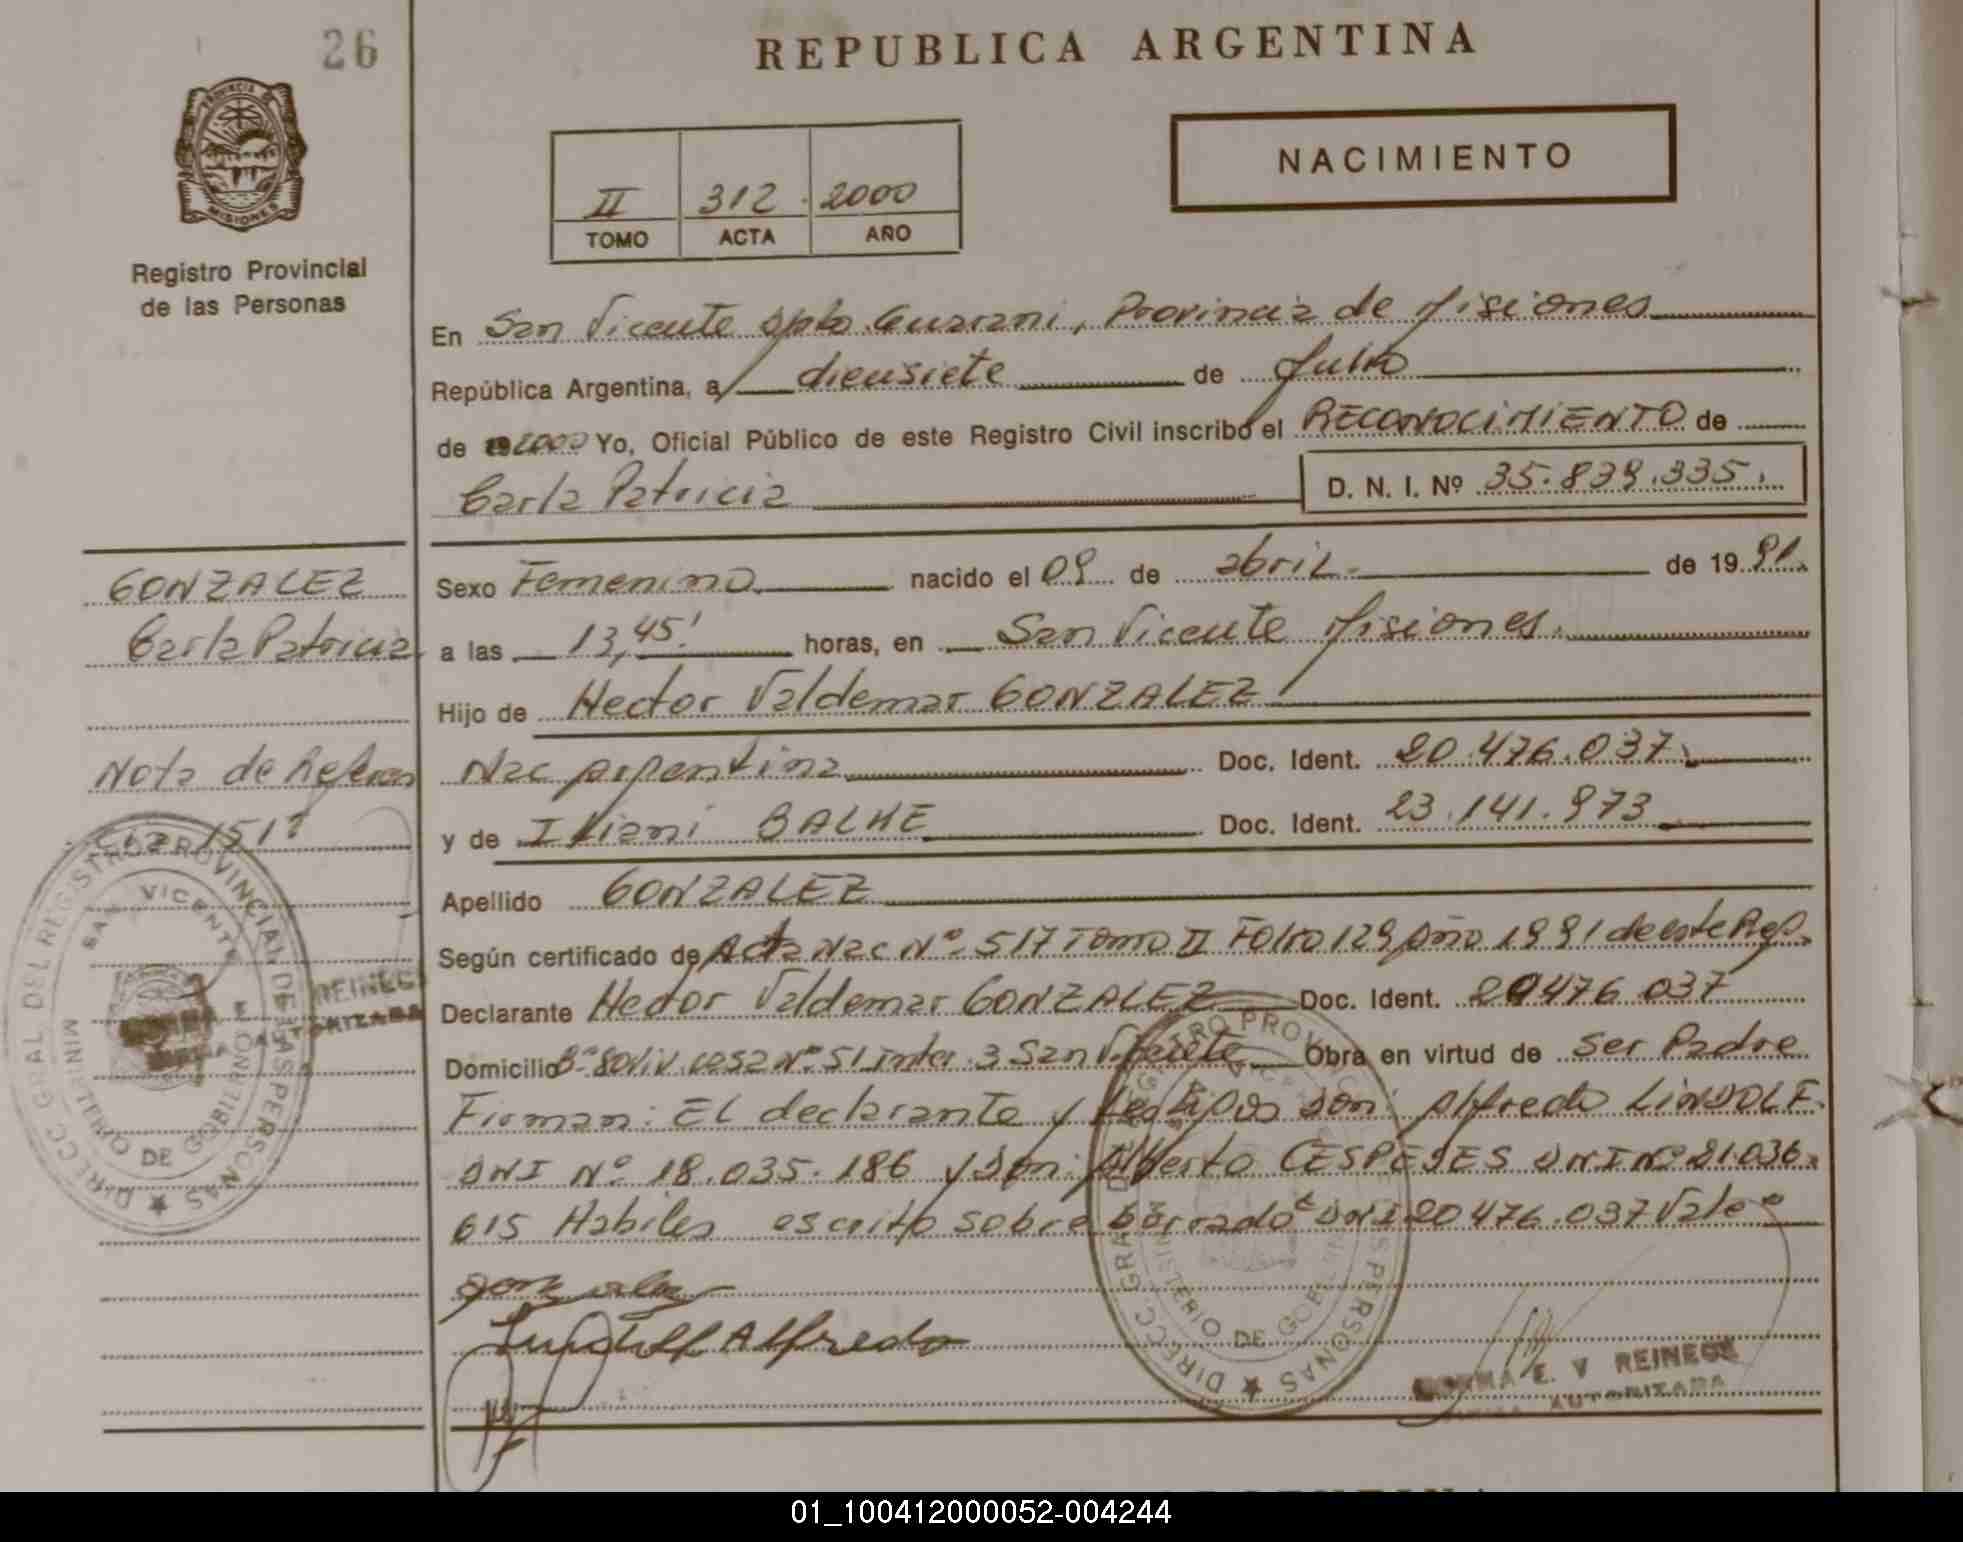 26
REPUBLICA ARGENTINA
PROVINCIA DE
MISIONES
Registro Provincial
de las Personas
NACIMIENTO
II 312 . 2000
TOMO ACTA AÑO
En San Vicente Dpto. Guarani, Provincia de Misiones
República Argentina, a diecisiete de Julio
de 2000 Yo, Oficial Público de este Registro Civil inscribo el RECONOCIMIENTO de
Carla Patricia D. N. I. Nº 35.839.335.
GONZALEZ
Carla Patricia
Nota de Referen
cia 151
Sexo Femenino nacido el 09 de abril de 19 91.
a las 13,45' horas, en San Vicente Misiones.
Hijo de Hector Valdemar GONZALEZ
Nac argentina Doc. Ident. 20.476.037
y de Iliani BALKE Doc. Ident. 23.141.973
Apellido GONZALEZ
Según certificado de Acta Nac Nº 517 Tomo II Folio 129 Año 1991 de este Reg.
Declarante Hector Valdemar GONZALEZ Doc. Ident. 20476 037
Domicilio Bº Soliv. casa Nº 51 inter. 3 San Vicente Obra en virtud de ser Padre
Firman: El declarante y testigos Don: Alfredo LINDOLF.
DNI Nº 18.035.186 y Don: Alberto CESPEDES DNI Nº 21.036.
615 Habiles escrito sobre borrado DNI 20 476.037 Vale
Gonzalez
Lindolf Alfredo
NORMA E. V REINECK
FIRMA AUTORIZADA
DIRECC GRAL DEL REGISTRO PROVINCIAL DE LAS PERSONAS
SAN VICENTE
MINISTERIO DE GOBIERNO
REINECK
FIRMA AUTORIZADA
DIRECC GRAL DEL REGISTRO PROVINCIAL DE LAS PERSONAS
MINISTERIO DE GOBIERNO
01_100412000052-004244